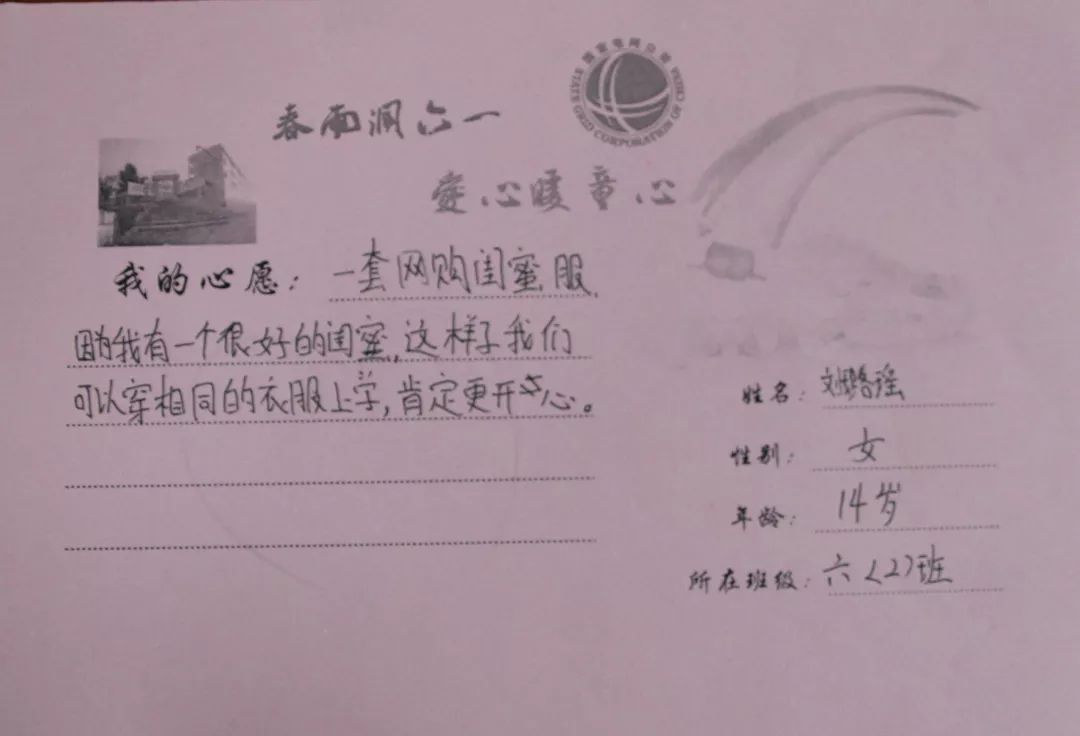 国家电网公司
STATE GRID CORPORATION OF CHINA
春雨润六一
爱心暖童心
我的心愿：一套网购闺蜜服，
因为我有一个很好的闺蜜，这样子我们
可以穿相同的衣服上学，肯定更开心。
姓名：刘璐瑶
性别：女
年龄：14岁
所在班级：六（2）班